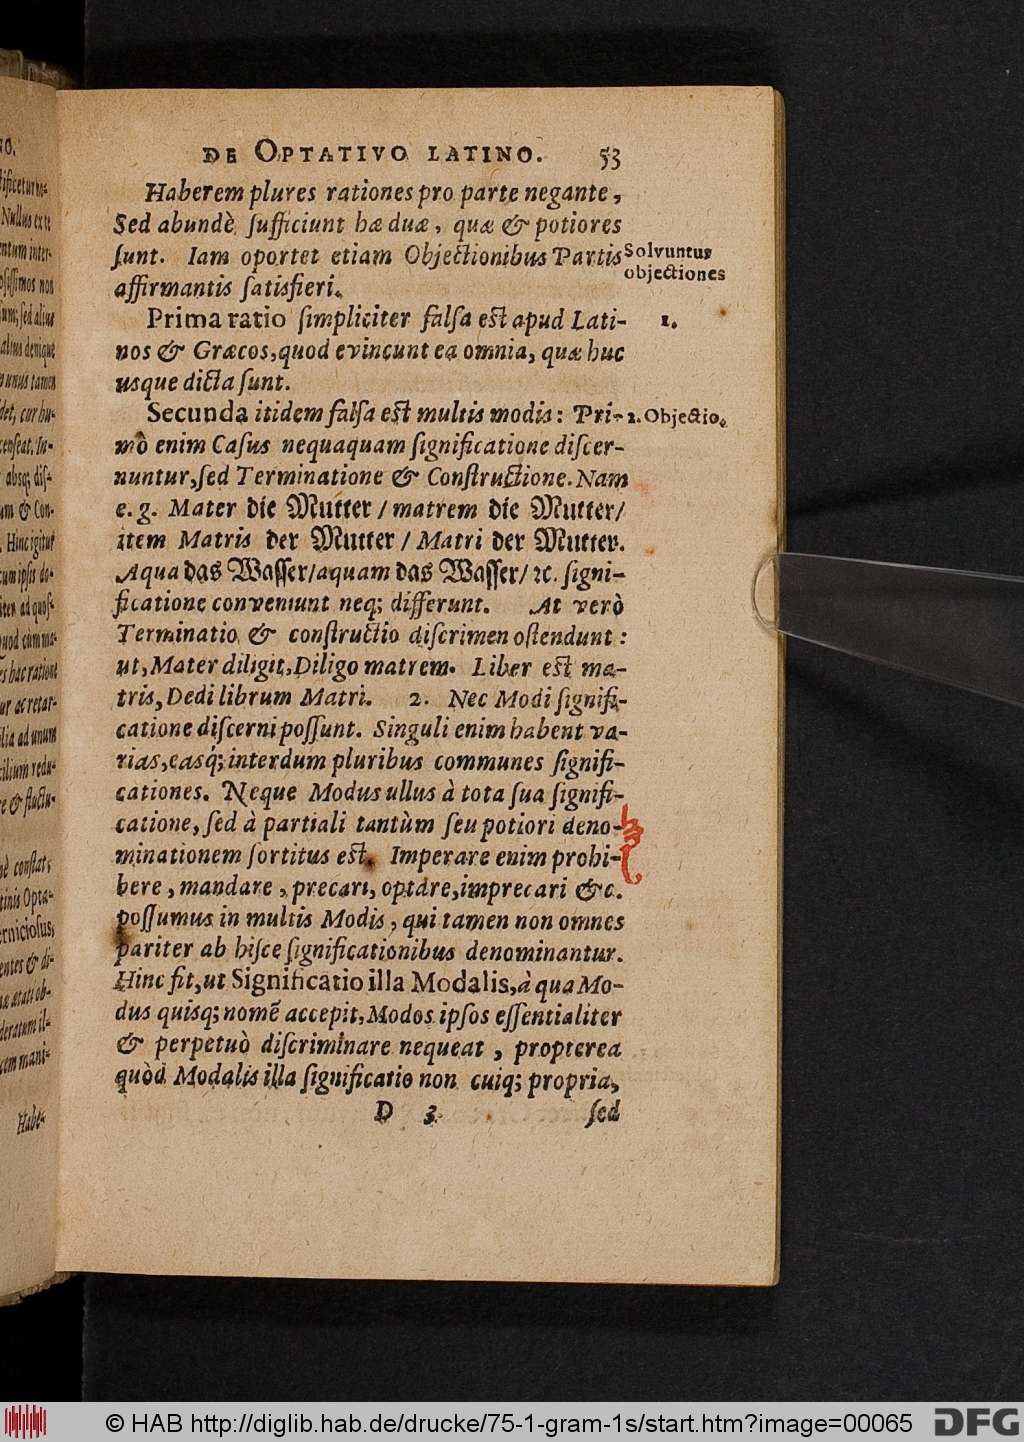 DE OPTATIVO LATINO. 53
Haberem plures rationes pro parte negante,
Sed abundè ſufficiunt hæ duæ, quæ & potiores
ſunt. Iam oportet etiam Objectionibus Partis
Solvuntur
objectiones
affirmantis ſatisfieri.
Prima ratio ſimpliciter falſa eſt apud Lati-
1.
nos & Græcos, quod evincunt ea omnia, quæ huc
usque dicta ſunt.
Secunda itidem falſa eſt multis modis: Pri-
2. Objectio.
mò enim Caſus nequaquam ſignificatione diſcer-
nuntur, ſed Terminatione & Conſtructione. Nam
e. g. Mater die Mutter / matrem die Mutter/
item Matris der Mutter / Matri der Mutter.
Aqua das Waſſer/aquam das Waſſer/ ꝛc. ſigni-
ficatione conveniunt neq; differunt. At verò
Terminatio & conſtructio diſcrimen oſtendunt:
ut, Mater diligit, Diligo matrem. Liber eſt ma-
tris, Dedi librum Matri. 2. Nec Modi ſignifi-
catione diſcerni poſſunt. Singuli enim habent va-
rias, easq́; interdum pluribus communes ſignifi-
cationes. Neque Modus ullus à tota ſua ſignifi-
catione, ſed à partiali tantùm ſeu potiori deno-
minationem ſortitus eſt. Imperare enim prohi-
bere, mandare, precari, optare, imprecari &c.
poſſumus in multis Modis, qui tamen non omnes
pariter ab hiſce ſignificationibus denominantur.
Hinc fit, ut Significatio illa Modalis, à qua Mo-
dus quisq; nomẽ accepit, Modos ipſos eſſentialiter
& perpetuò diſcriminare nequeat, propterea
quòd Modalis illa ſignificatio non cuiq; propria,
D 3 ſed
© HAB http://diglib.hab.de/drucke/75-1-gram-1s/start.htm?image=00065 DFG